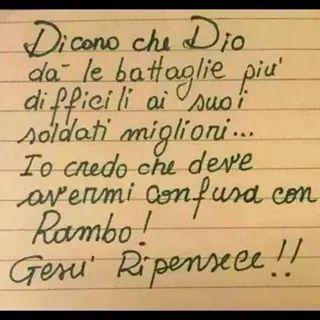 Dicono che Dio
da le battaglie piu'
difficili ai suoi
soldati migliori...
Io credo che deve
avermi confusa con
Rambo!
Gesu' Ripensece!!